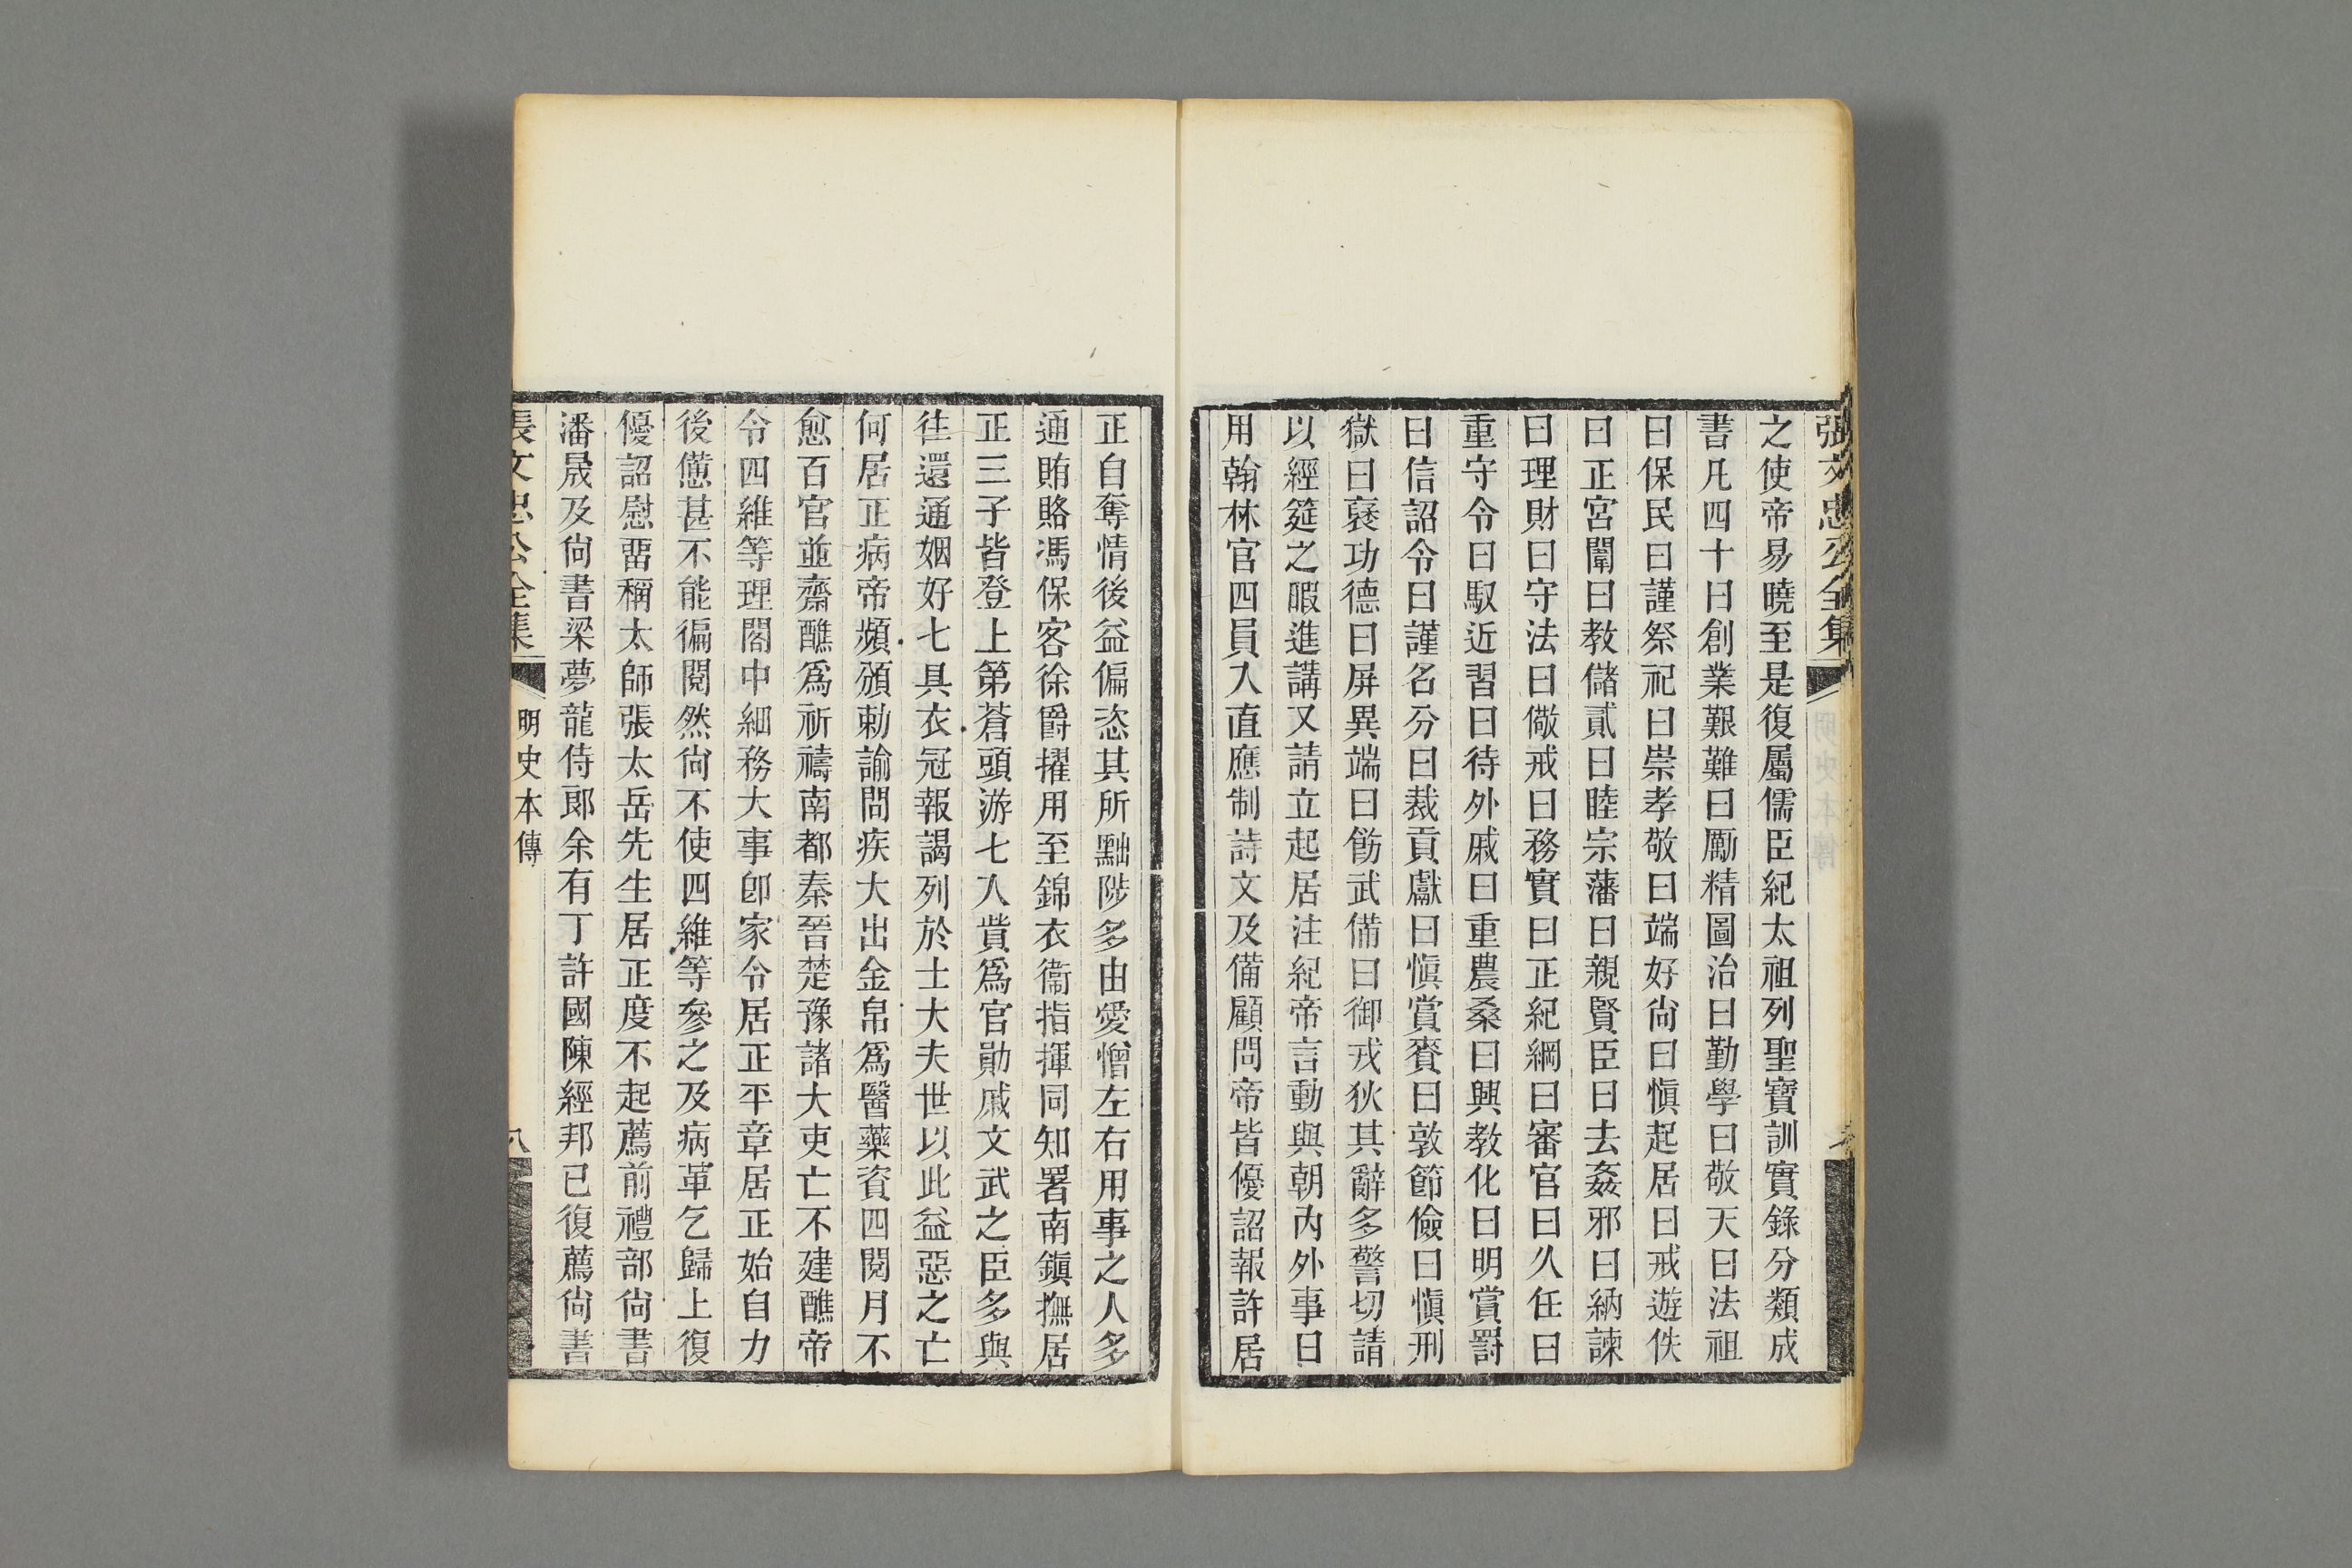 張文忠公全集
之使帝易曉至是復屬儒臣紀太祖列聖寶訓實錄分類成
書凡四十曰創業艱難曰勵精圖治曰勤學曰敬天曰法祖
曰保民曰謹祭祀曰崇孝敬曰端好尙曰愼起居曰戒遊佚
曰正宮闈曰教儲貳曰睦宗藩曰親賢臣曰去姦邪曰納諫
曰理財曰守法曰儆戒曰務實曰正紀綱曰審官曰久任曰
重守令曰馭近習曰待外戚曰重農桑曰興教化曰明賞罰
曰信詔令曰謹名分曰裁貢獻曰愼賞賚曰敦節儉曰愼刑
獄曰襃功德曰屏異端曰飭武備曰御戎狄其辭多警切請
以經筵之暇進講又請立起居注紀帝言動與朝內外事日
用翰林官四員入直應制詩文及備顧問帝皆優詔報許居
正自奪情後益偏恣其所黜陟多由愛憎左右用事之人多
通賄賂馮保客徐爵擢用至錦衣衞指揮同知署南鎭撫居
正三子皆登上第蒼頭游七入貲爲官勛戚文武之臣多與
往還通姻好七具衣冠報謁列於士大夫世以此益惡之亡
何居正病帝頻頒勅諭問疾大出金帛爲醫藥資四閱月不
愈百官並齋醮爲祈禱南都秦晉楚豫諸大吏亡不建醮帝
令四維等理閣中細務大事卽家令居正平章居正始自力
後憊甚不能徧閱然尙不使四維等參之及病革乞歸上復
優詔慰畱稱太師張太岳先生居正度不起薦前禮部尙書
潘晟及尙書梁夢龍侍郎余有丁許國陳經邦已復薦尙書
張文忠公全集
明史本傳
八